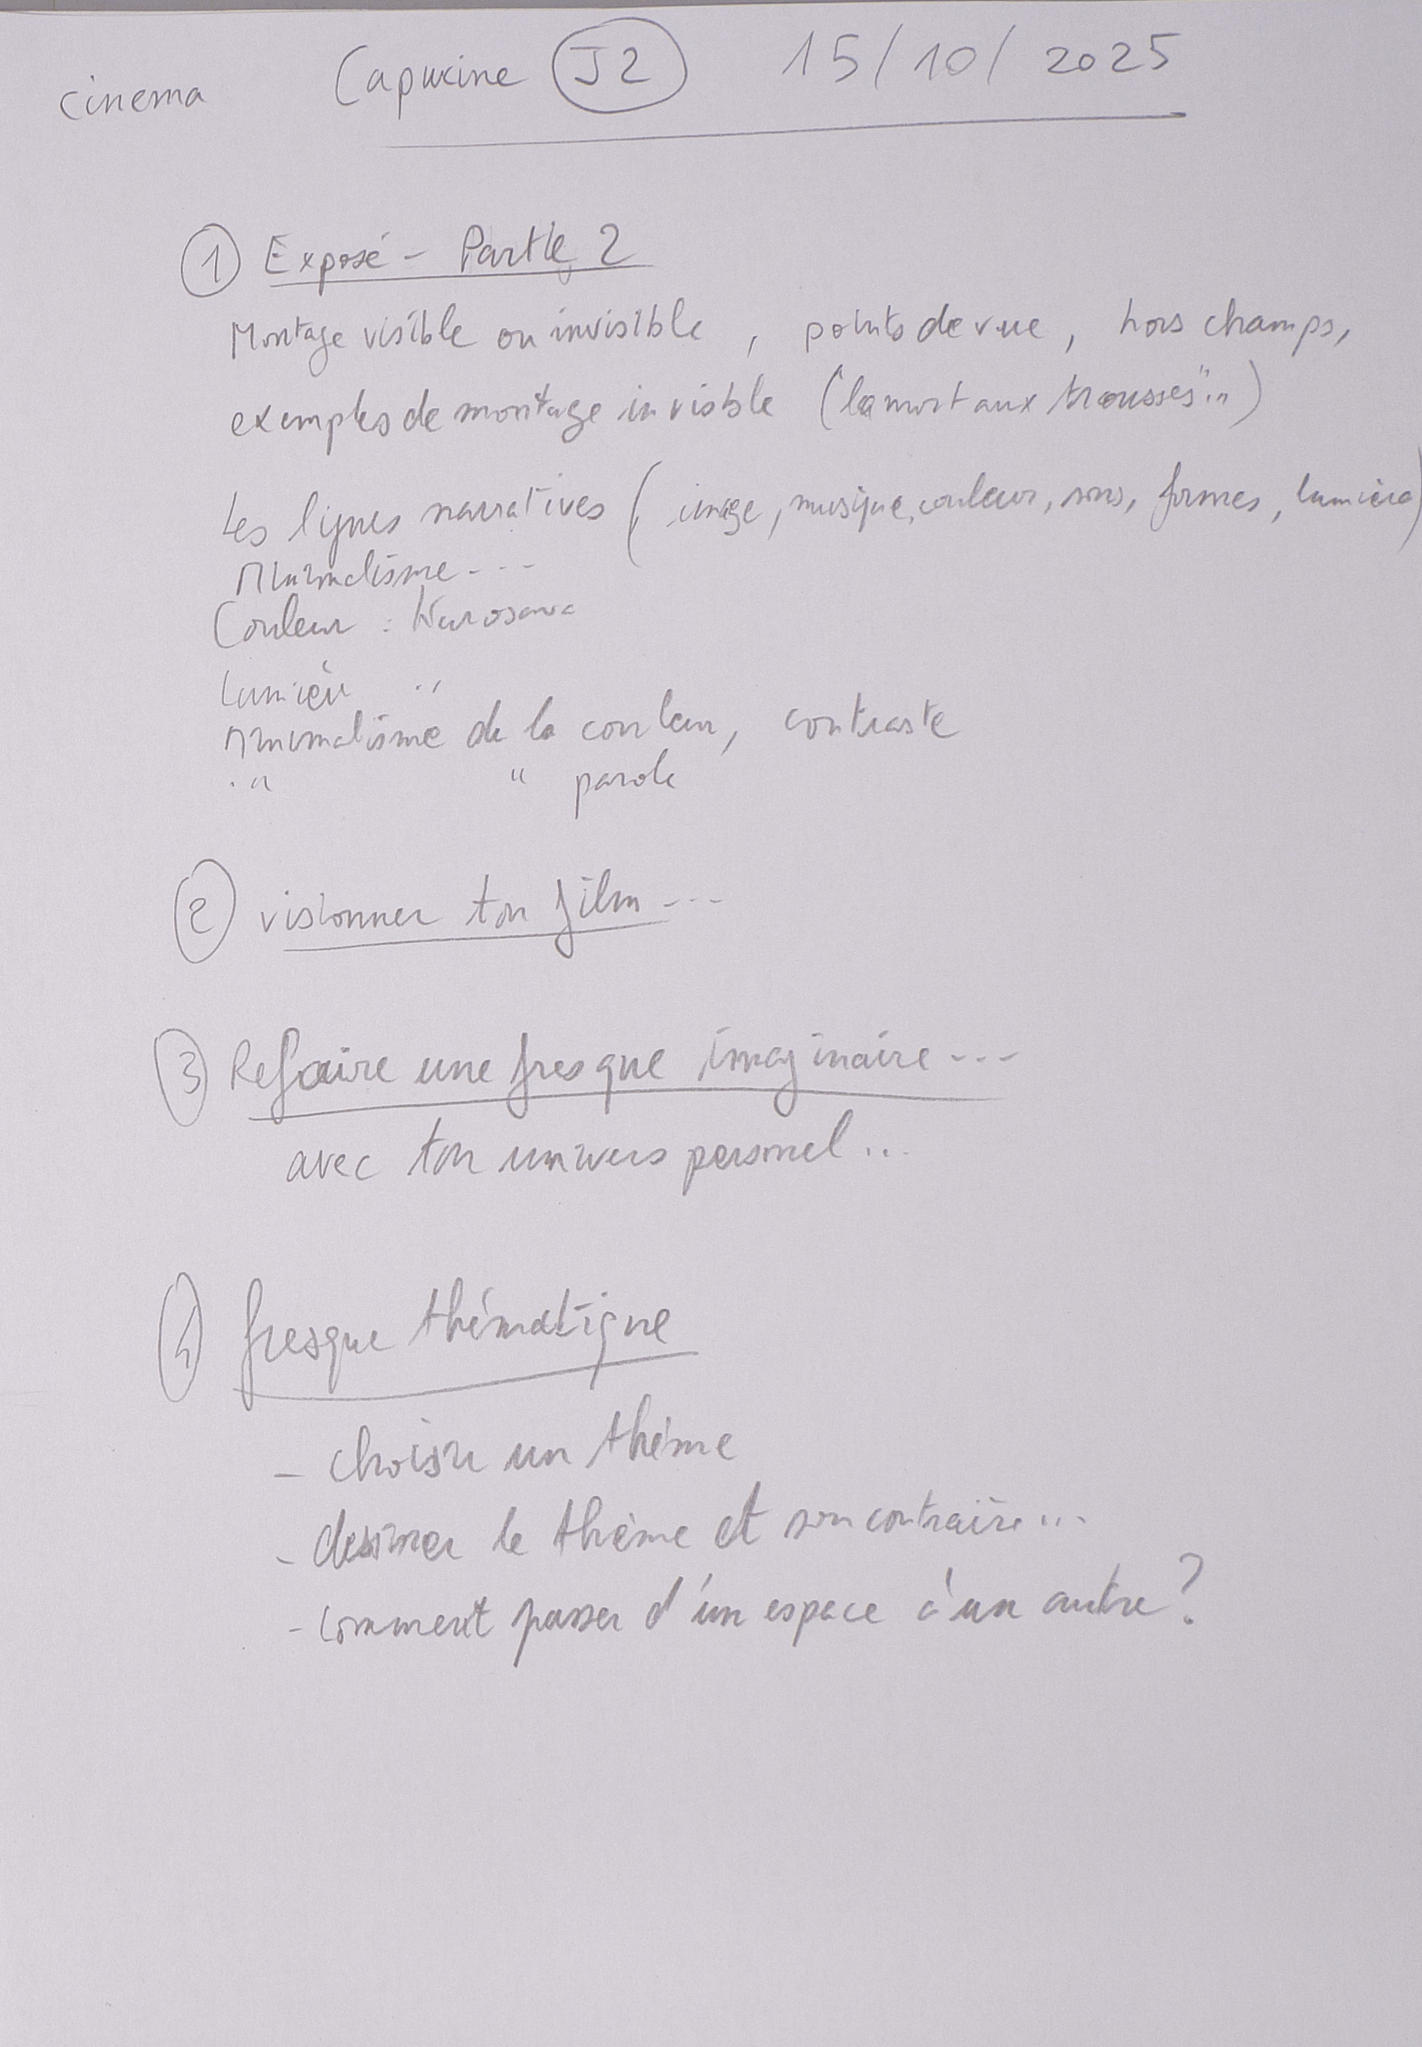 cinema Capucine J2 15/10/2025
1 Exposé - Partie 2
Montage visible ou invisible, points de vue, hors champs,
exemples de montage invisible ("la mort aux trousses"...)
Les lignes narratives (image, musique, couleur, sons, formes, lumière)
Minimalisme ---
Couleur : Kurosawa
Lumière "
Minimalisme de la couleur, contraste
" " parole
2 visionner ton film ---
3 Refaire une fresque imaginaire ---
avec ton univers personnel...
4 fresque thématique
- choisir un thème
- dessiner le thème et son contraire...
- comment passer d'un espace à un autre ?